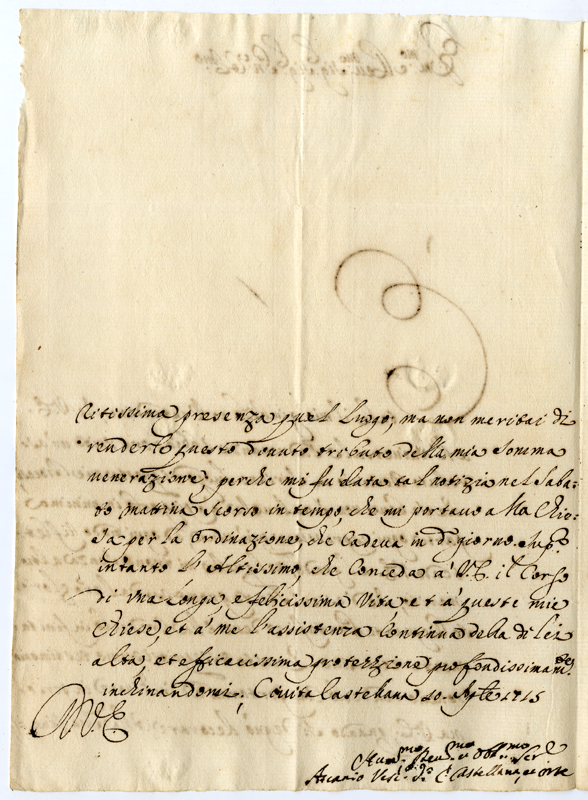 ritissima presenza quel luogo, ma non meritai di
renderlo questo douato tributo della mia somma
uenerazione, perche mi fù data tal notizia nel Saba-
to mattina scorso in tempo, che mi portauo alla Chie-
sa per la ordinazione, che cadeua in dº giorno. Supco
intanto l'Altissimo, che conceda à V.E. il Corso
di una longa, e felicissima Vita et à queste mie
Chiese, et à me l'assistenza Continua della di lei
alta, et efficacissima protezzione profondissimamte
inchinandomi. Ciuita Castellana 20. 1715
V.E.
Humo Deumo et Obbmo Ser
Vesc. di Ca Castellana, et Orte